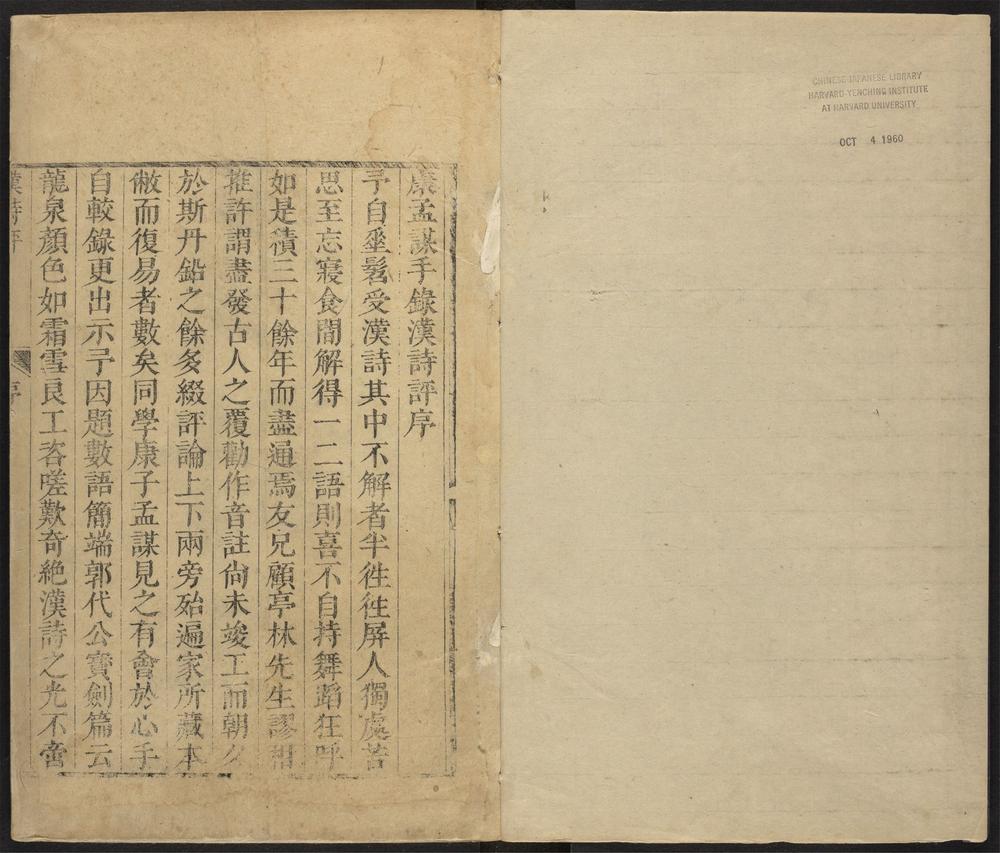 CHINESE-JAPANESE LIBRARY
HARVARD-YENCHING INSTITUTE
AT HARVARD UNIVERSITY
OCT 4 1960
康孟謀手錄漢詩評序
予自垂髫受漢詩其中不解者半徃徃屏人獨處苦
思至忘寢食間解得一二語則喜不自持舞蹈狂呼
如是積三十餘年而盡通焉友兄顧亭林先生謬相
推許謂盡發古人之覆勸作音註尙未竣工而朝夕
於斯丹鉛之餘多綴評論上下兩旁殆遍家所藏本
敝而復易者數矣同學康子孟謀見之有會於心手
自較錄更出示予因題數語簡端郭代公寶劍篇云
龍泉顏色如霜雪良工咨嗟歎奇絶漢詩之光不啻
漢詩評
序